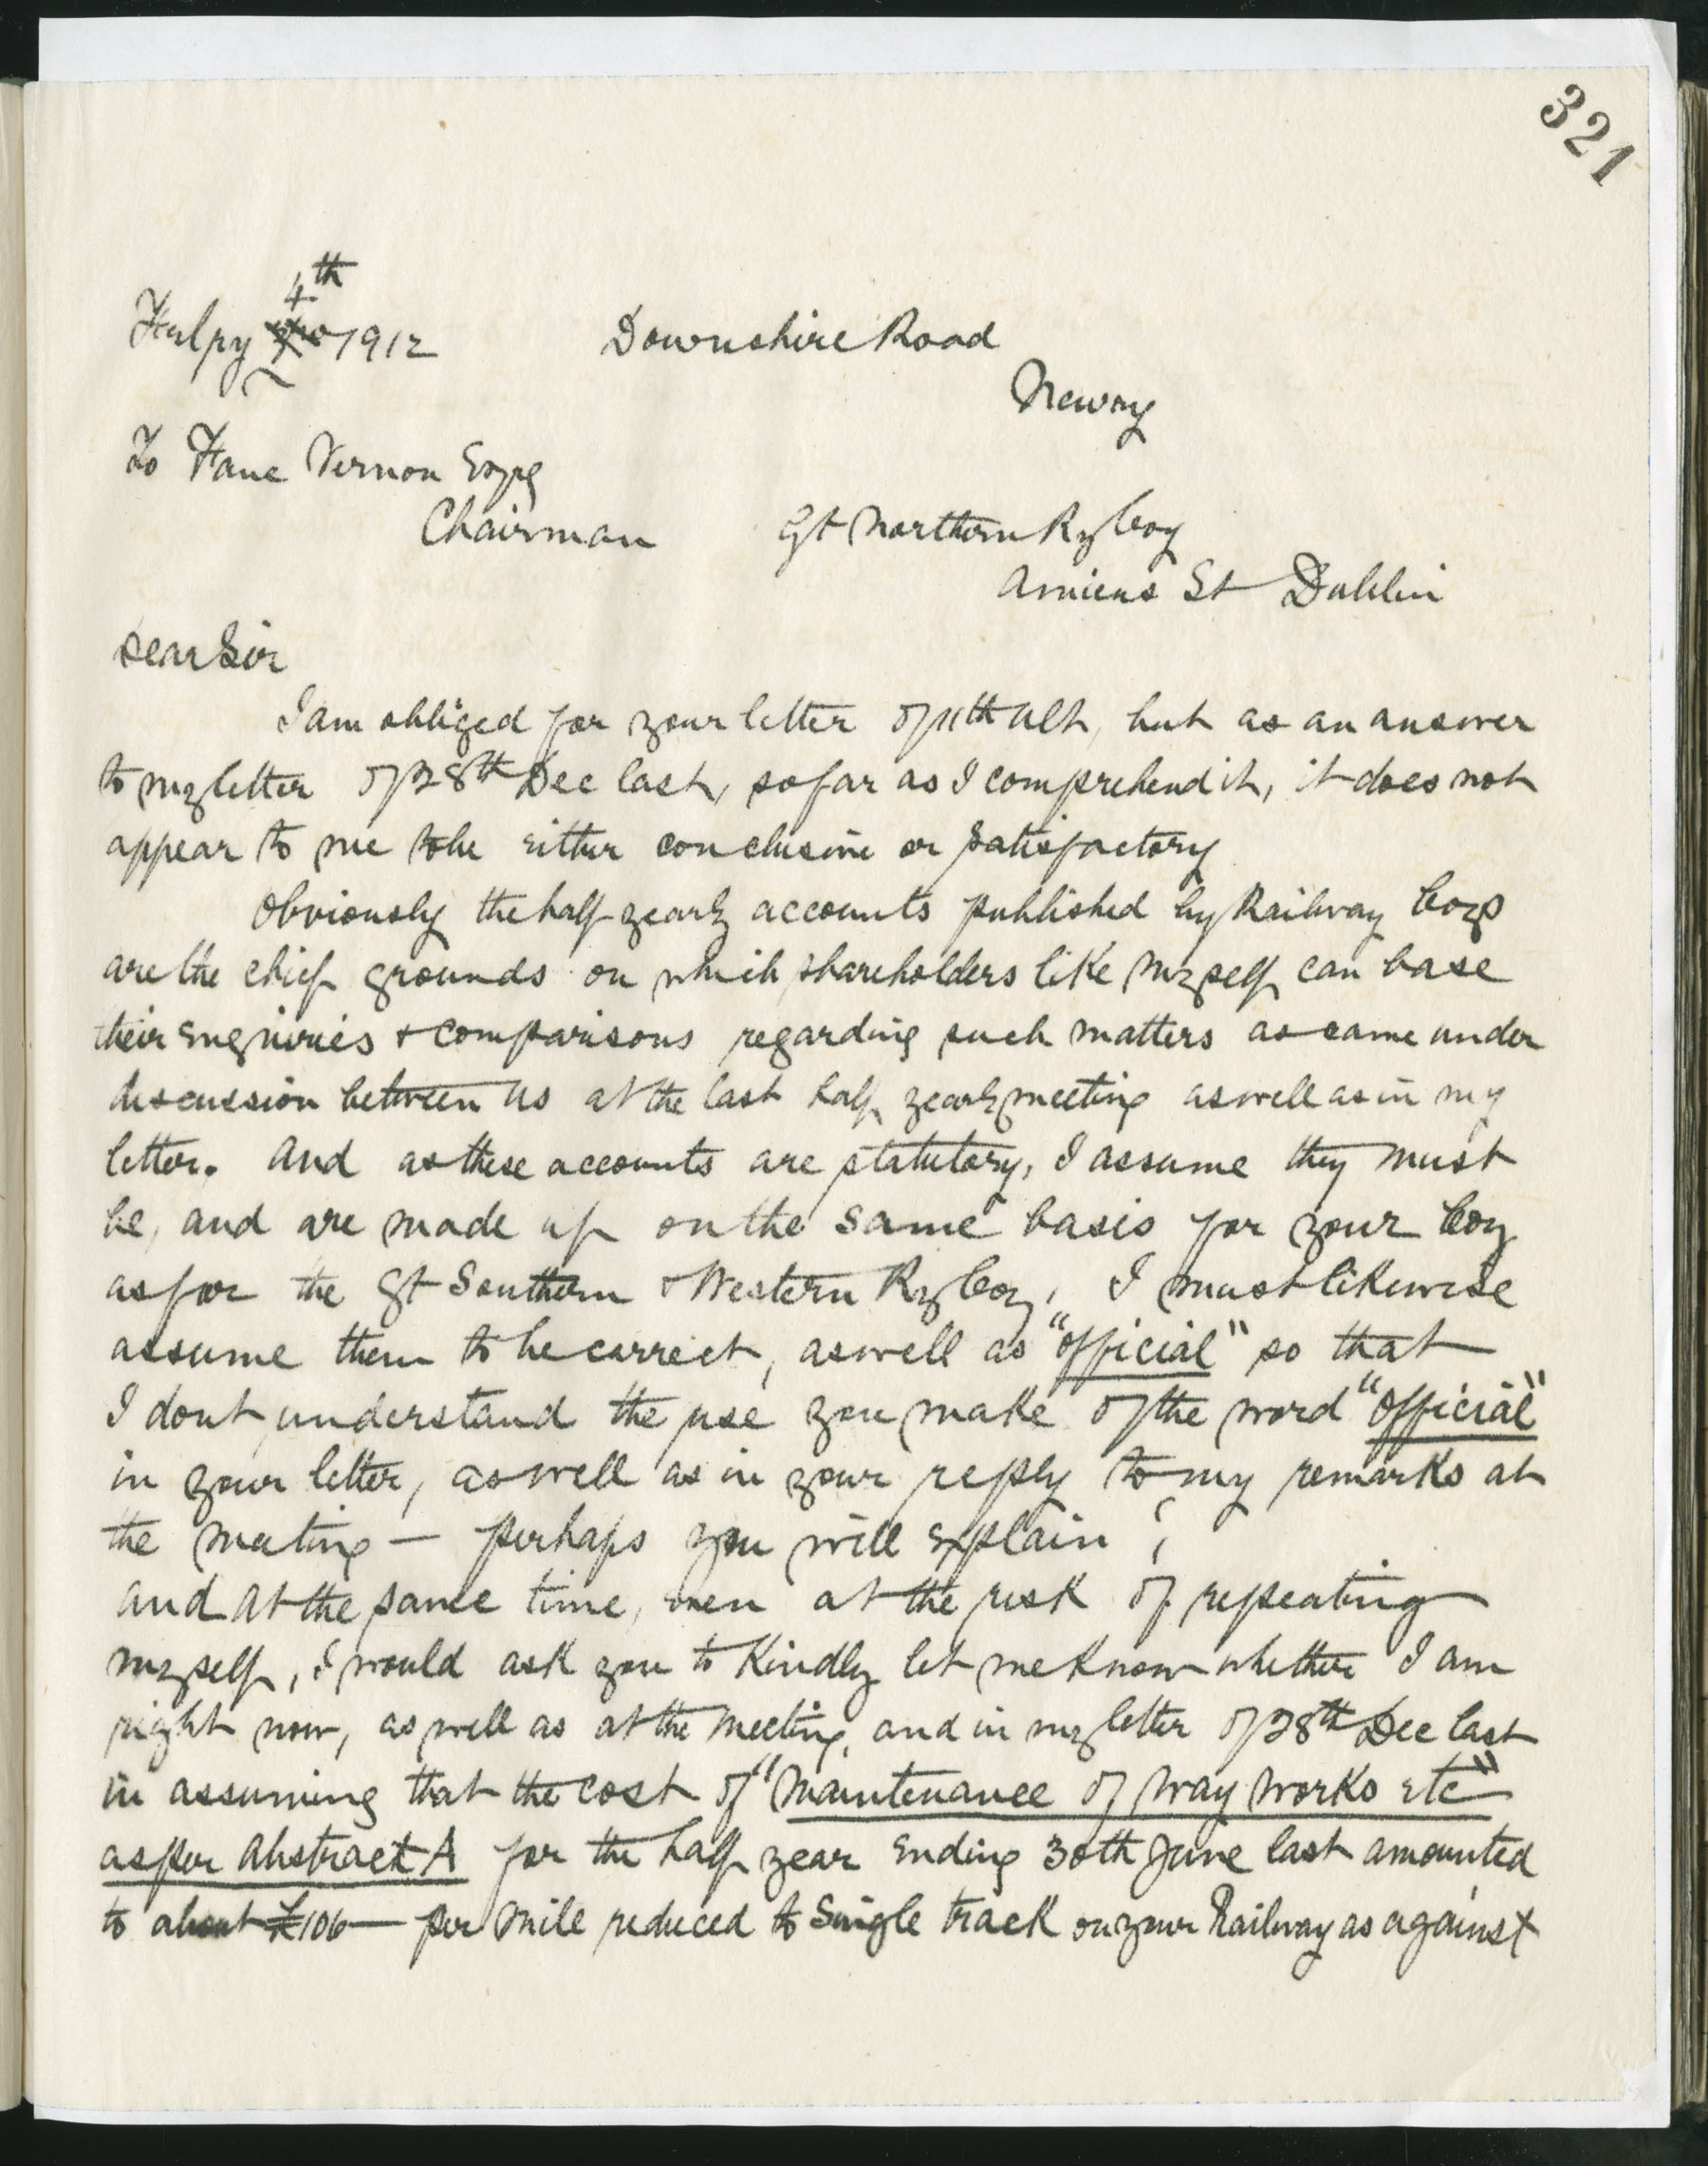 321
4th
Febry 1912 Downshire Road
Newry
To Fane Vernon Esqre
Chairman Gt Northern Ry Coy
Amiens St Dublin
Dear Sir
I am obliged for your letter of 11th ult, but as an answer
to my letter of 28th Dec last, so far as I comprehend it, it does not
appear to me to be either conclusive or satisfactory
Obviously the half yearly accounts published by Railway Coys
are the chief grounds on which shareholders like myself can base
their enquiries & comparisons regarding such matters as came under
discussion between us at the last half yearly meeting as well as in my
letter. And as these accounts are statutory, I assume they must
be, and are made up on the same basis for your Coy
as for the Gt Southern & Western Ry Coy, I must likewise
assume them to be correct, as well as "official" so that
I dont understand the use you make of the word "official"
in your letter, as well as in your reply to my remarks at
the meeting — perhaps you will explain ;
and at the same time, even at the risk of repeating
myself, I would ask you to kindly let me know whether I am
right now, as well as at the meeting, and in my letter of 28th Dec last
in assuming that the cost of "Maintenance of way works etc"
as per Abstract A for the half year ending 30th June last amounted
to about £106 — per mile reduced to single track on your Railway as against